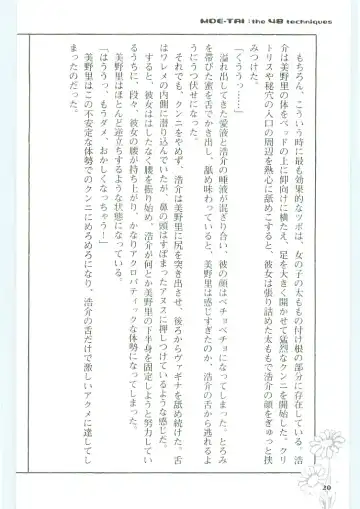 MOE-TAI : the 48 techniques
もちろん、こういう時に最も効果的なツボは、女の子の太ももの付け根の部分に存在している。浩
介は美野里の体をベッドの上に仰向けに横たえ、足を大きく開かせて猛烈なクンニを開始した。クリ
トリスや秘穴の入口の周辺を熱心に舐めこすると、彼女は張り詰めた太ももで浩介の顔をぎゅっと挟
みつけた。
「くうううっ……！」
溢れ出してきた愛液と浩介の唾液が混ざり合い、彼の顔はベチョベチョになってしまった。とろみ
を帯びた蜜を舌でかき出し、舐め味わっていると、美野里は感じすぎたのか、浩介の舌から逃れるよ
うにうつ伏せになった。
それでも、クンニをやめず、浩介は美野里に尻を突き出させ、後ろからヴァギナを舐め続けた。舌
はワレメの内側に潜り込んでいたが、鼻の頭はすぼまったアヌスに押しつけているような感じだ。
すると、彼女ははしたなく腰を振り始め、浩介が何とか美野里の下半身を固定しようと努力してい
るうちに、段々、彼女の腰が持ち上がり、かなりアクロバティックな体勢になってしまった。
美野里はほとんど逆立ちするような状態になっている。
「はううっ、もうダメ、おかしくなっちゃう！」
美野里はこの不安定な体勢でのクンニにめろめろになり、浩介の舌だけで激しいアクメに達してし
まったのだった。
20